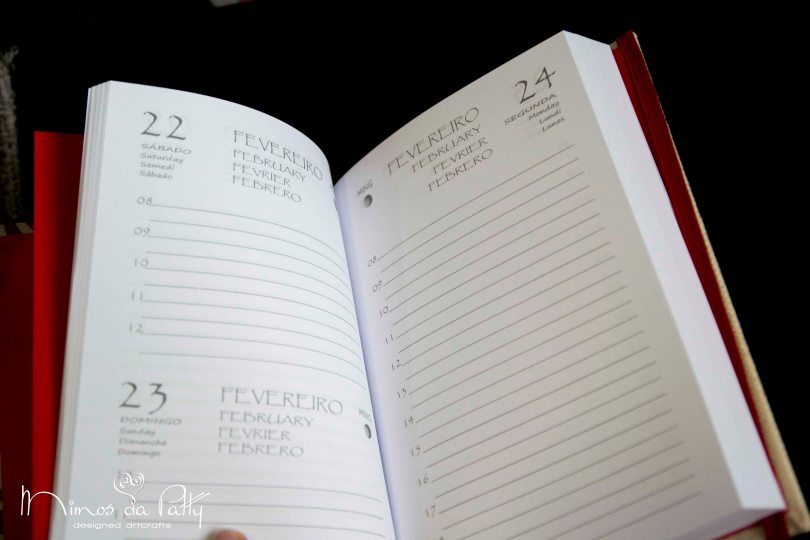 22
SÁBADO
Saturday
Samedi
Sábado
FEVEREIRO
FEBRUARY
FEVRIER
FEBRERO
08
09
10
11
12
23
DOMINGO
Sunday
Dimanche
Domingo
FEVEREIRO
FEBRUARY
FEVRIER
FEBRERO
MING
24
SEGUNDA
Monday
Lundi
Lunes
FEVEREIRO
FEBRUARY
FEVRIER
FEBRERO
MING
08
09
10
11
12
13
14
15
16
17
Mimos da Patty
designed artcrafts